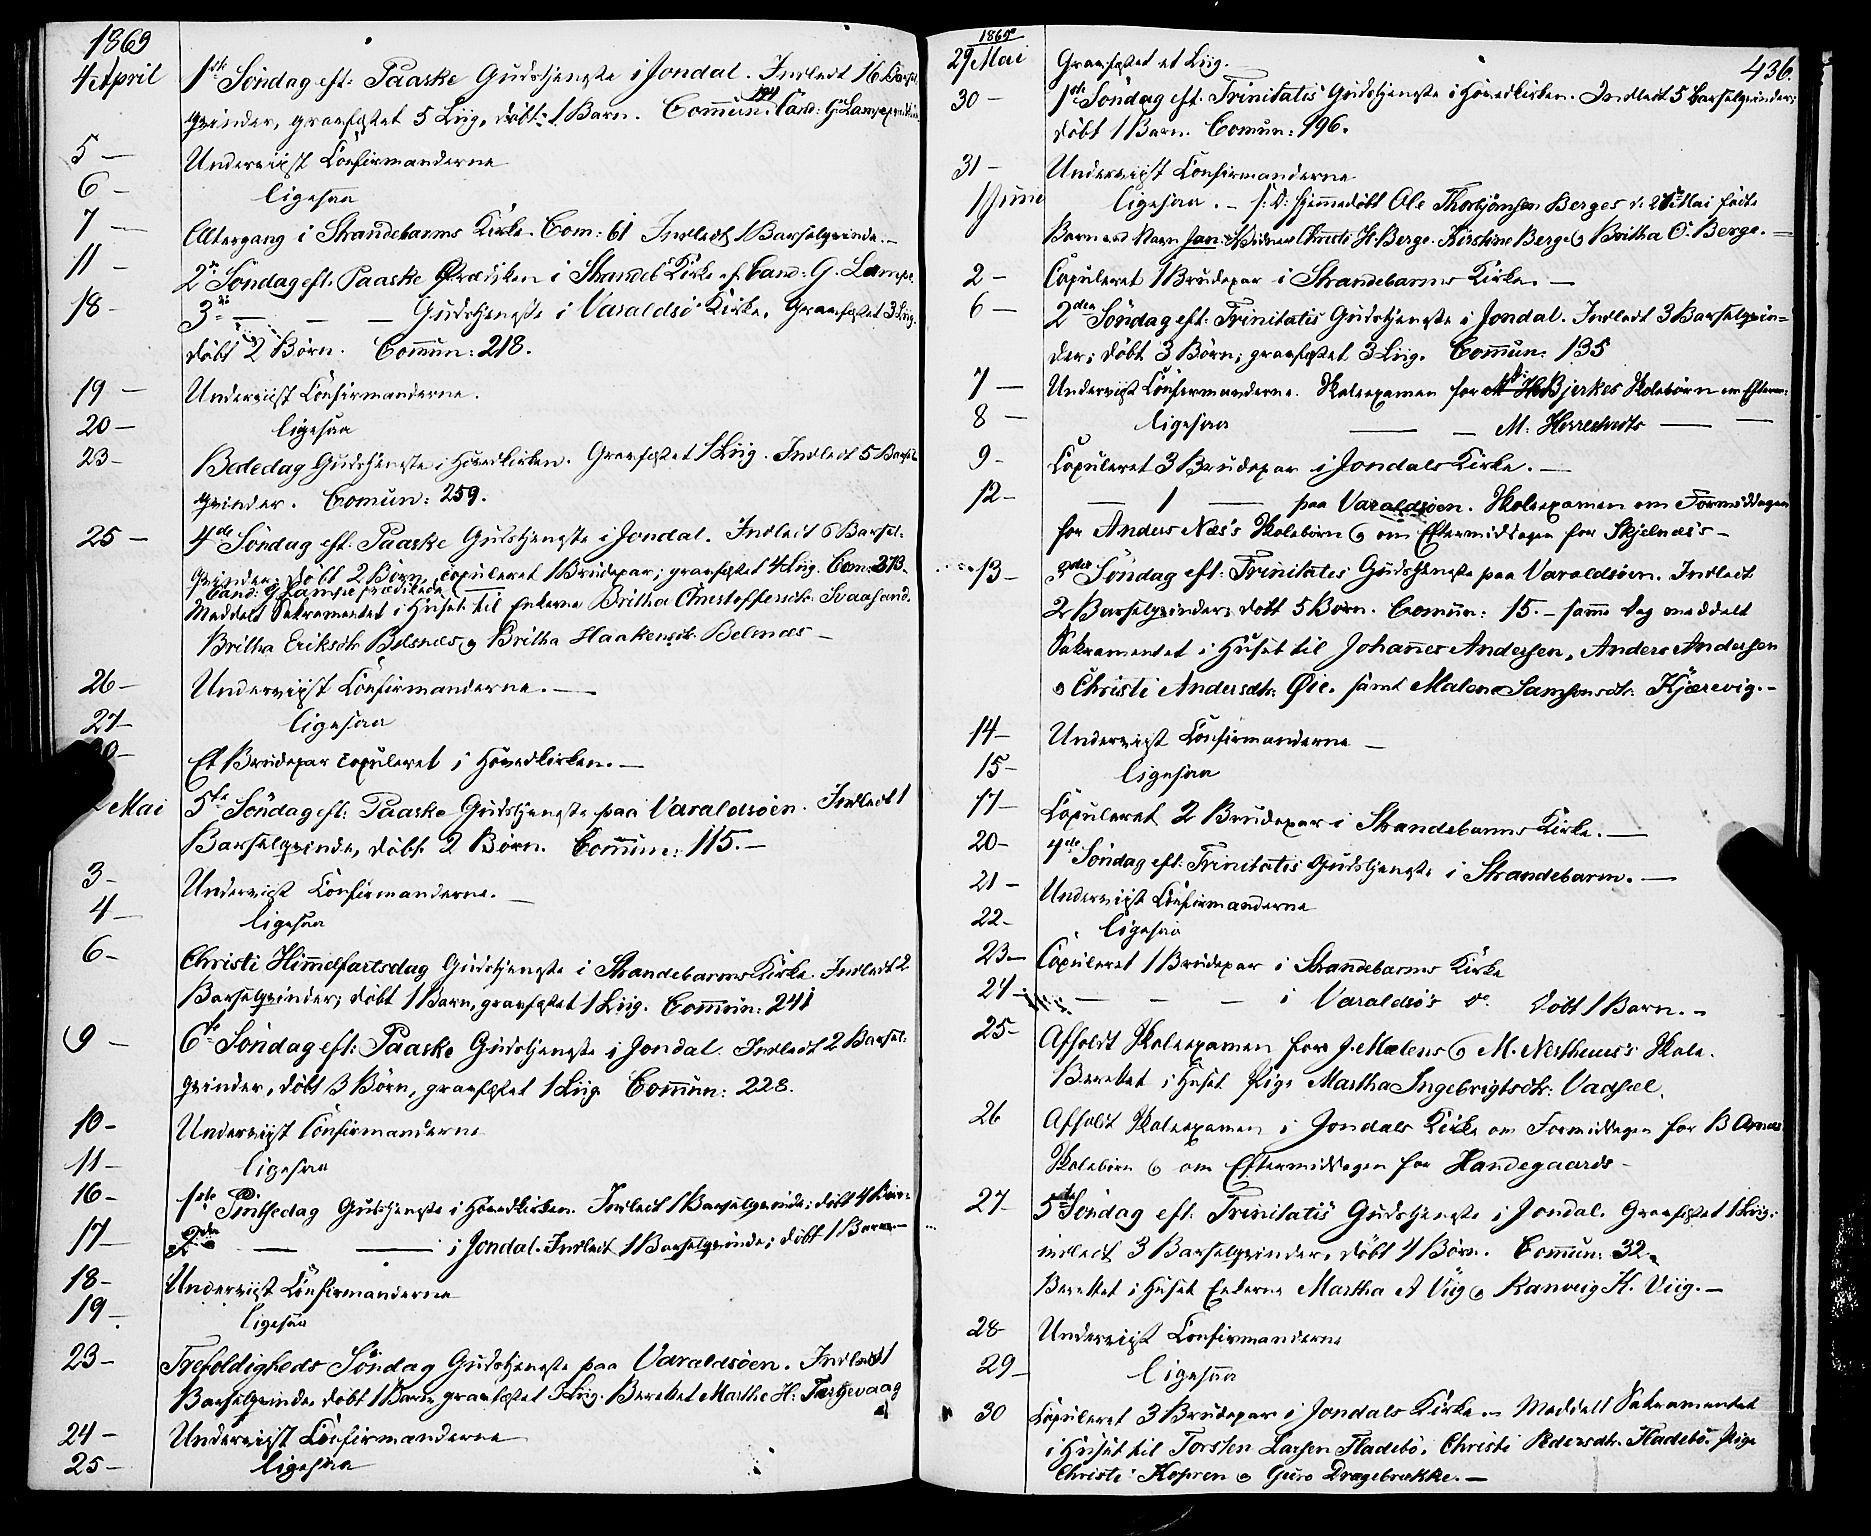 1869
4 April 1ste Söndag eft: Paaske Gudstjeneste i Jondal. Indledt 16 Barsel-
qvinder, graafæstet 5 Liig, döbt: 1 Barn. Commun: 194 Cand: G. Lampe prædikede
5 — Underviist Confirmanderne
6 — ligesaa
7 — Altergang i Strandebarms Kirke. Com: 61 Indledt 1 Barselqvinde. —
11 — 2n Söndag eft. Paaske Prædiken i Strandeb: Kirke af Cand: G. Lampe.
18 — 3die — — — Gudstjeneste i Varaldsö Kirke. Graafæstet 3 Liig.
döbt 2 Börn. Commun: 218.
19 — Underviist Confirmanderne.
20 — ligesaa
23 — Bededag Gudstjeneste i Hovedkirken. Graafæstet 1 Liig. Indledt 5 Barsel-
qvinder. Comun: 259.
25 — 4de Söndag eft: Paaske Gudstjeneste i Jondal. Indledt 6 Barsel-
qvinder; döbt 2 Börn, copuleret 1 Brudepar; graafæstet 4 Liig. Com: 273.
Cand: G Lampe prædikede
Meddelt Sakramentet i Huset til Enkerne Britha Christoffersdtr. Svaasand.
Britha Eriksdtr. Belsnæs og Britha Haakensdtr. Belsnæs —
26 — Underviist Confirmanderne. —
27 — ligesaa
Et Brudepar copuleret i Hovedkirken. —
2 Mai 5te Söndag eft: Paaske Gudstjeneste paa Varaldsöen. Indledt 1
Barselqvinde, döbt 2 Börn. Commun: 115. —
3 — Underviist Confirmanderne. —
4 — ligesaa
6 — Christi Himmelfartsdag Gudstjeneste i Strandebarms Kirke. Indledt 2
Barselqvinder; döbt 1 Barn, graafæstet 1 Liig. Commun: 241
9 — 6te Söndag eft: Paaske Gudstjeneste i Jondal. Indledt 2 Barsel-
qvinder, döbt 3 Börn, graafæstet 1 Liig. Commun: 228.
10 — Underviist Confirmanderne
11 — ligesaa
16 — 1ste Pintsedag Gudstjeneste i Hovedkirken. Indledt 1 Barselqvinde; döbt 4 Börn
17 — 2den — — i Jondal. Indledt 1 Barselqvinde; döbt 1 Barn —
18 — Underviist Confirmanderne
19 — ligesaa
23 — Trefoldigheds Söndag Gudstjeneste paa Varaldsöen. Indledt 1
Barselqvinde, döbt 1 Barn, graafæstet 3 Liig. Berettet Marthe H:
24 — Underviist Confirmanderne
25 — ligesaa
436.
1869
29 Mai Graafæstet et Liig. —
30 — 1ste Söndag eft. Trinitatis Gudstjeneste i Hovedkirken. Indledt 5 Barselqvinder;
döbt 1 Barn. Comun: 196.
31 — Underviist Confirmanderne
1 Juni ligesaa. — hjemmedöbt Ole Thorbjönsen Berges Mai födte
Barn Navn Jan. Christi H. Berge. Kirstine Berge og Britha O. Berge. —
2 — Copuleret 1 Brudepar i Strandebarms Kirke. —
6 — 2den Söndag eft: Trinitatis Gudstjeneste i Jondal. Indledt 3 Barselqvin-
der; döbt 3 Börn; graafæstet 3 Liig. Commun: 135
7 — Underviist Confirmanderne. Skoleexamen for Bjerkes Skolebörn om Efterm:
8 — ligesaa — — M: Herrestveits — —
9 — Copuleret 3 Brudepar i Jondals Kirke. —
12 — — 1 — paa Varaldsöen. Skoleexamen om Formiddagen
for Anders Næs's Skolebörn og om Eftermiddagen for Skjelnæs's —
13 — 3die Söndag eft: Trinitatis Gudstjeneste paa Varaldsöen. Indledt
2 Barselqvinder, döbt 5 Börn. Comun: 15. — samme Dag meddelt
Sakramentet i Huset til Johannes Andersen, Anders Andersen
og Christi Andersdtr: Øie. samt Malene Samsonsdtr: Kjærevig. —
14 — Underviist Confirmanderne —
15 — ligesaa
17 — Copuleret 2 Brudepar i Strandebarms Kirke. —
20 — 4de Söndag eft: Trinitatis Gudstjeneste i Strandebarm. —
21 — Underviist Confirmanderne
22 — ligesaa
23 — Copuleret 1 Brudepar i Strandebarms Kirke
24 — — — — i Varaldsö's do. döbt 1 Barn. —
25 — Afholdt Skoleexamen for J. Mælens og M. Nestheims's Skole.
Berettet i Huset Pige Martha Ingebrigtsdtr: Vadsæl.
26 Afholdt Skoleexamen i Jondals Kirke om Formiddagen for B Aarnæs
Skolebörn og om Eftermiddagen for Handegaards —
27 — 5te Söndag eft: Trinitatis Gudstjeneste i Jondal. Graafæstet 1 Liig.
indledt 3 Barselqvinder, döbt 4 Börn. Comun: 32.
Berettet i Huset Enkerne Martha A Viig og Ranveig K. Viig. —
28 — Underviist Confirmanderne
29 — ligesaa
30 Copuleret 3 Brudepar i Jondals Kirke. — Meddelt Sakramentet
i Huset til Torsten Larsen Fladebö, Christi Pedersdtr. Fladebö. Pige
Christi Kopren og Guro Dragebrække. —